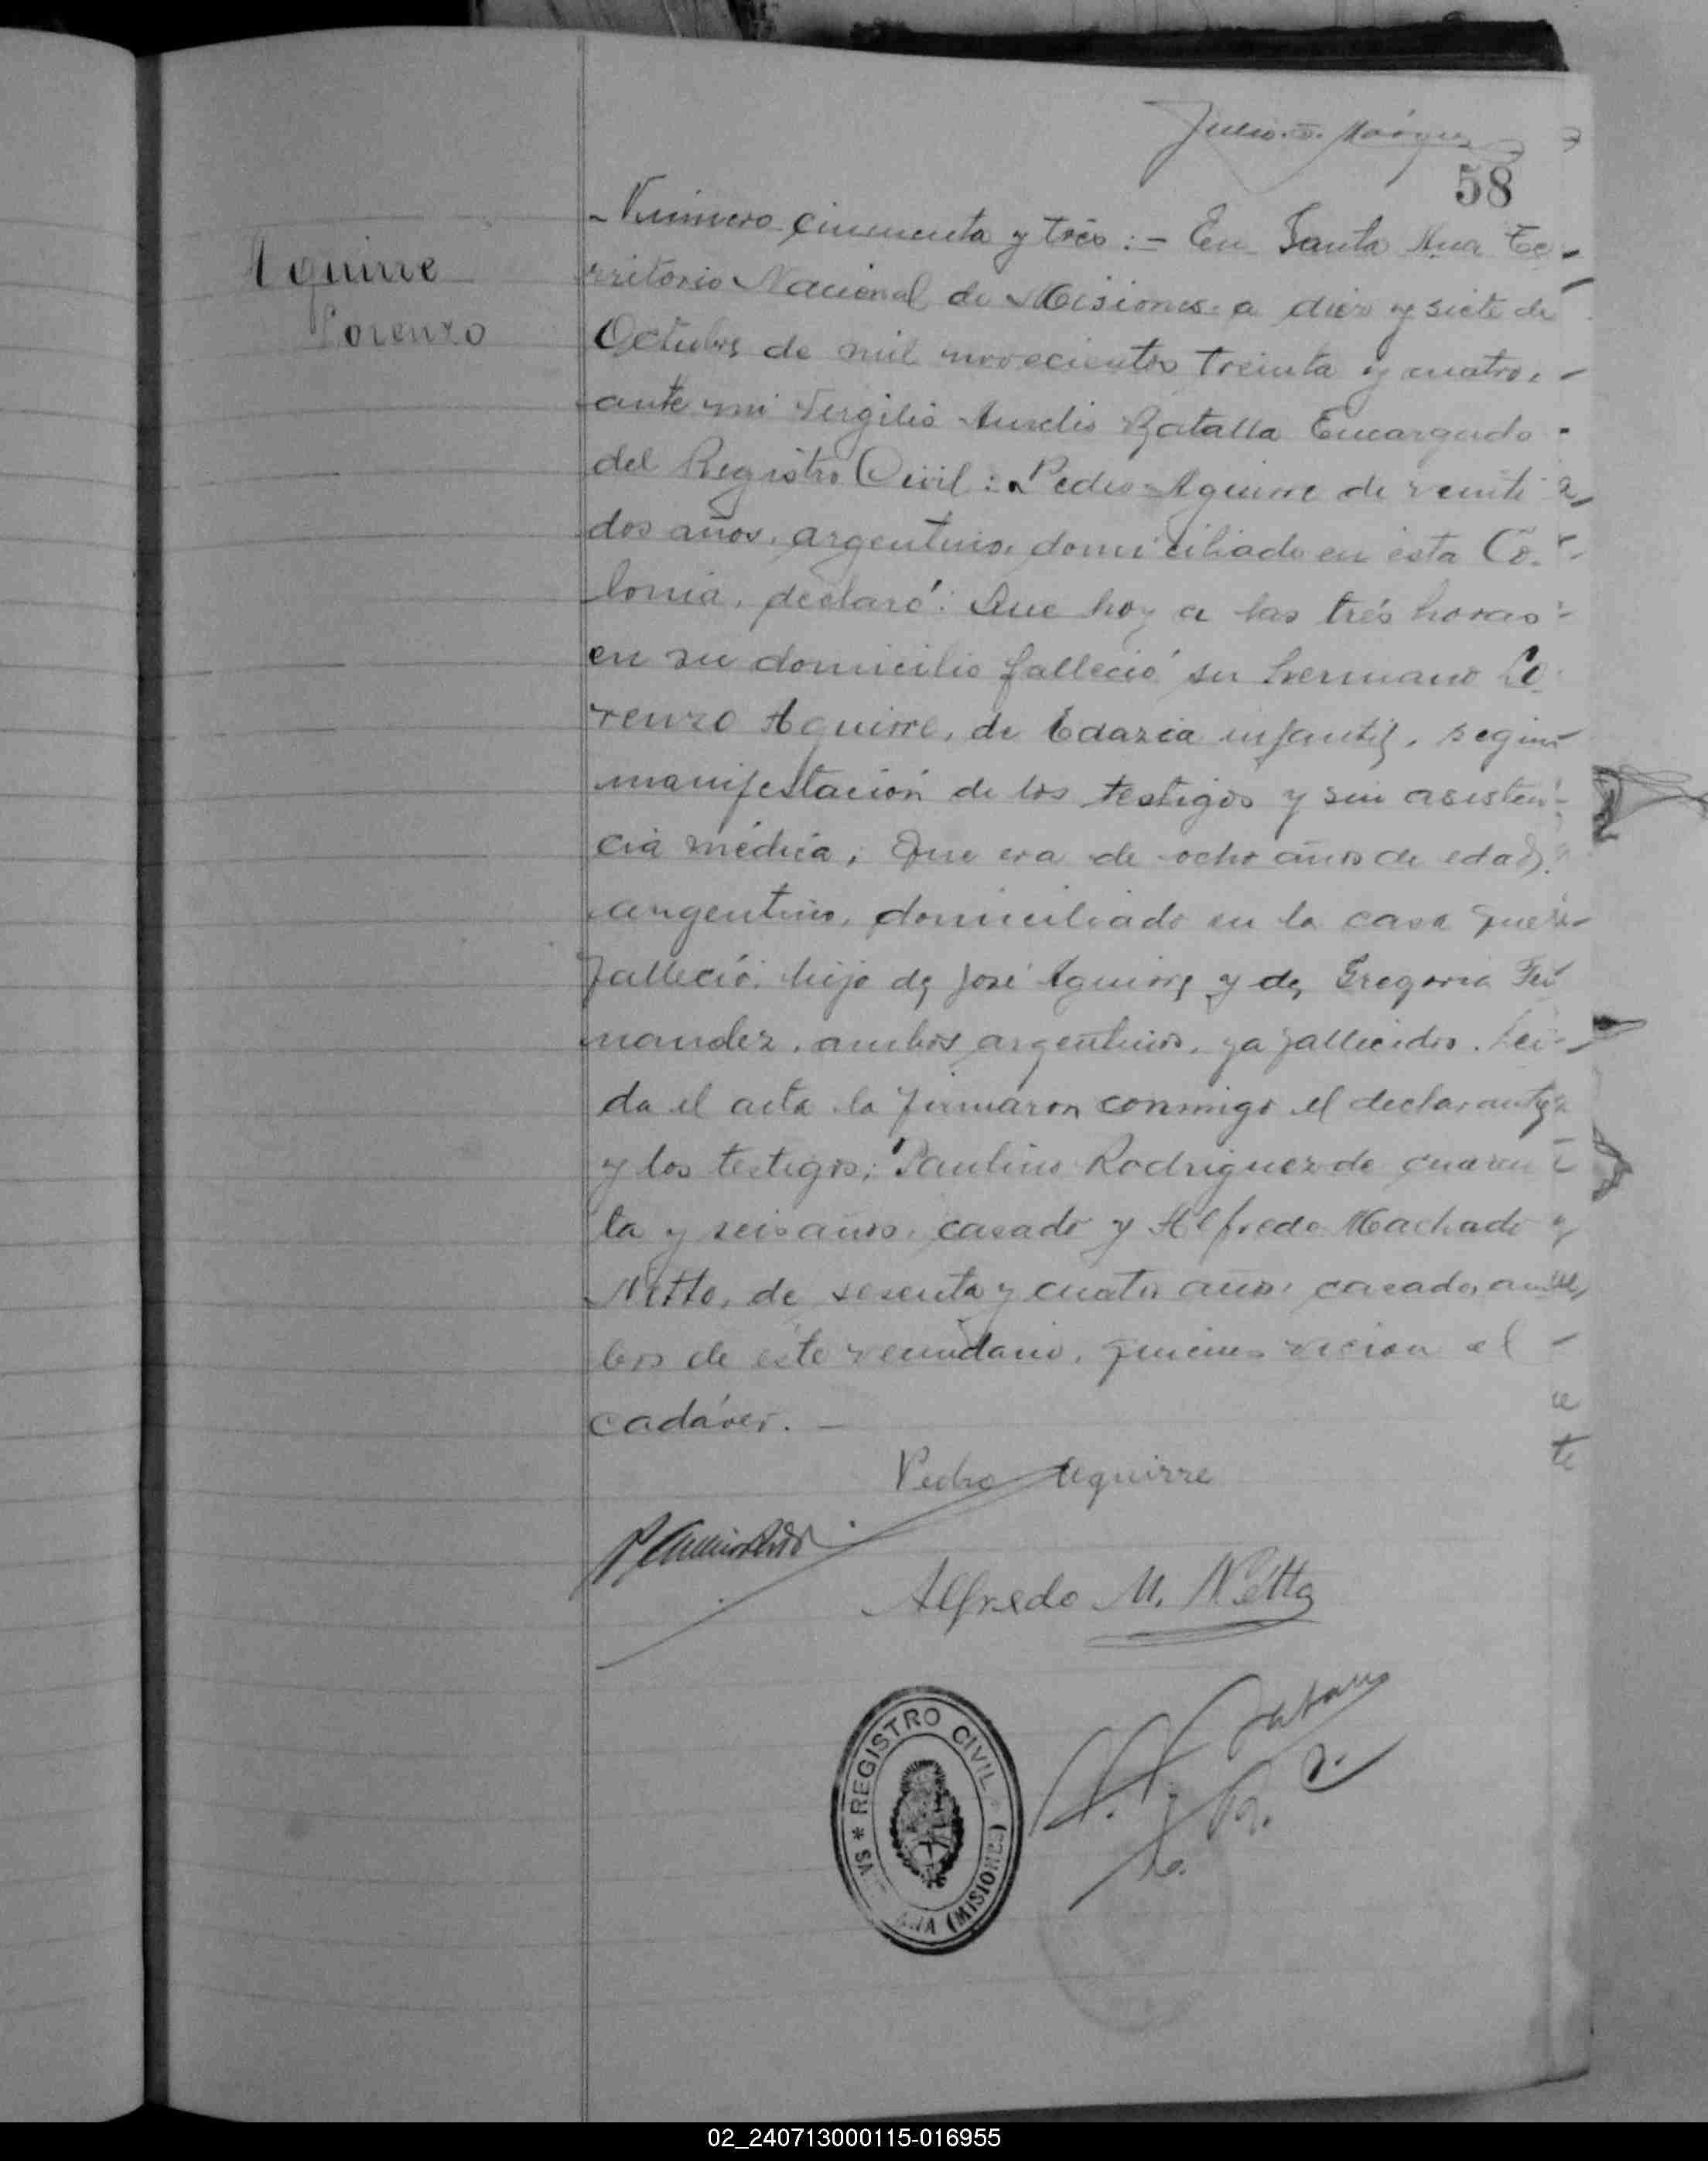 Julio. Márquez
58
Aguirre
Lorenzo
- Número cincuenta y trés : - En Santa Ana Te-
rritorio Nacional de Misiones a diez y siete de
Octubre de mil novecientos treinta y cuatro, -
ante mi Vergilio Aurelio Batalla Encargado
del Registro Civil : Pedro Aguirre de veinti
dos años, argentino, domiciliado en ésta Co-
lonia, declaró: Que hoy a las trés horas
en su domicilio falleció su hermano Lo
renzo Aguirre, de infantil, según
manifestación de los testigos y sin asisten-
cia médica, Que era de ocho años de edad,
argentino, domiciliado en la casa que
falleció hijo de José Aguirre y de Gregoria Fer
nandez, ambos argentinos, ya fallecidos. Lei-
da el acta la firmaron conmigo el declarante
y los testigos; Paulino Rodriguez de cuaren
ta y seis años, casado y Alfredo Machado
Netto, de sesenta y cuatro años, casado, am
bos de éste vecindario, quienes vieron el
cadáver. -
Pedro Aguirre
Alfredo M. Netto
* REGISTRO CIVIL *
SA ANA (MISIONES)
02_240713000115-016955